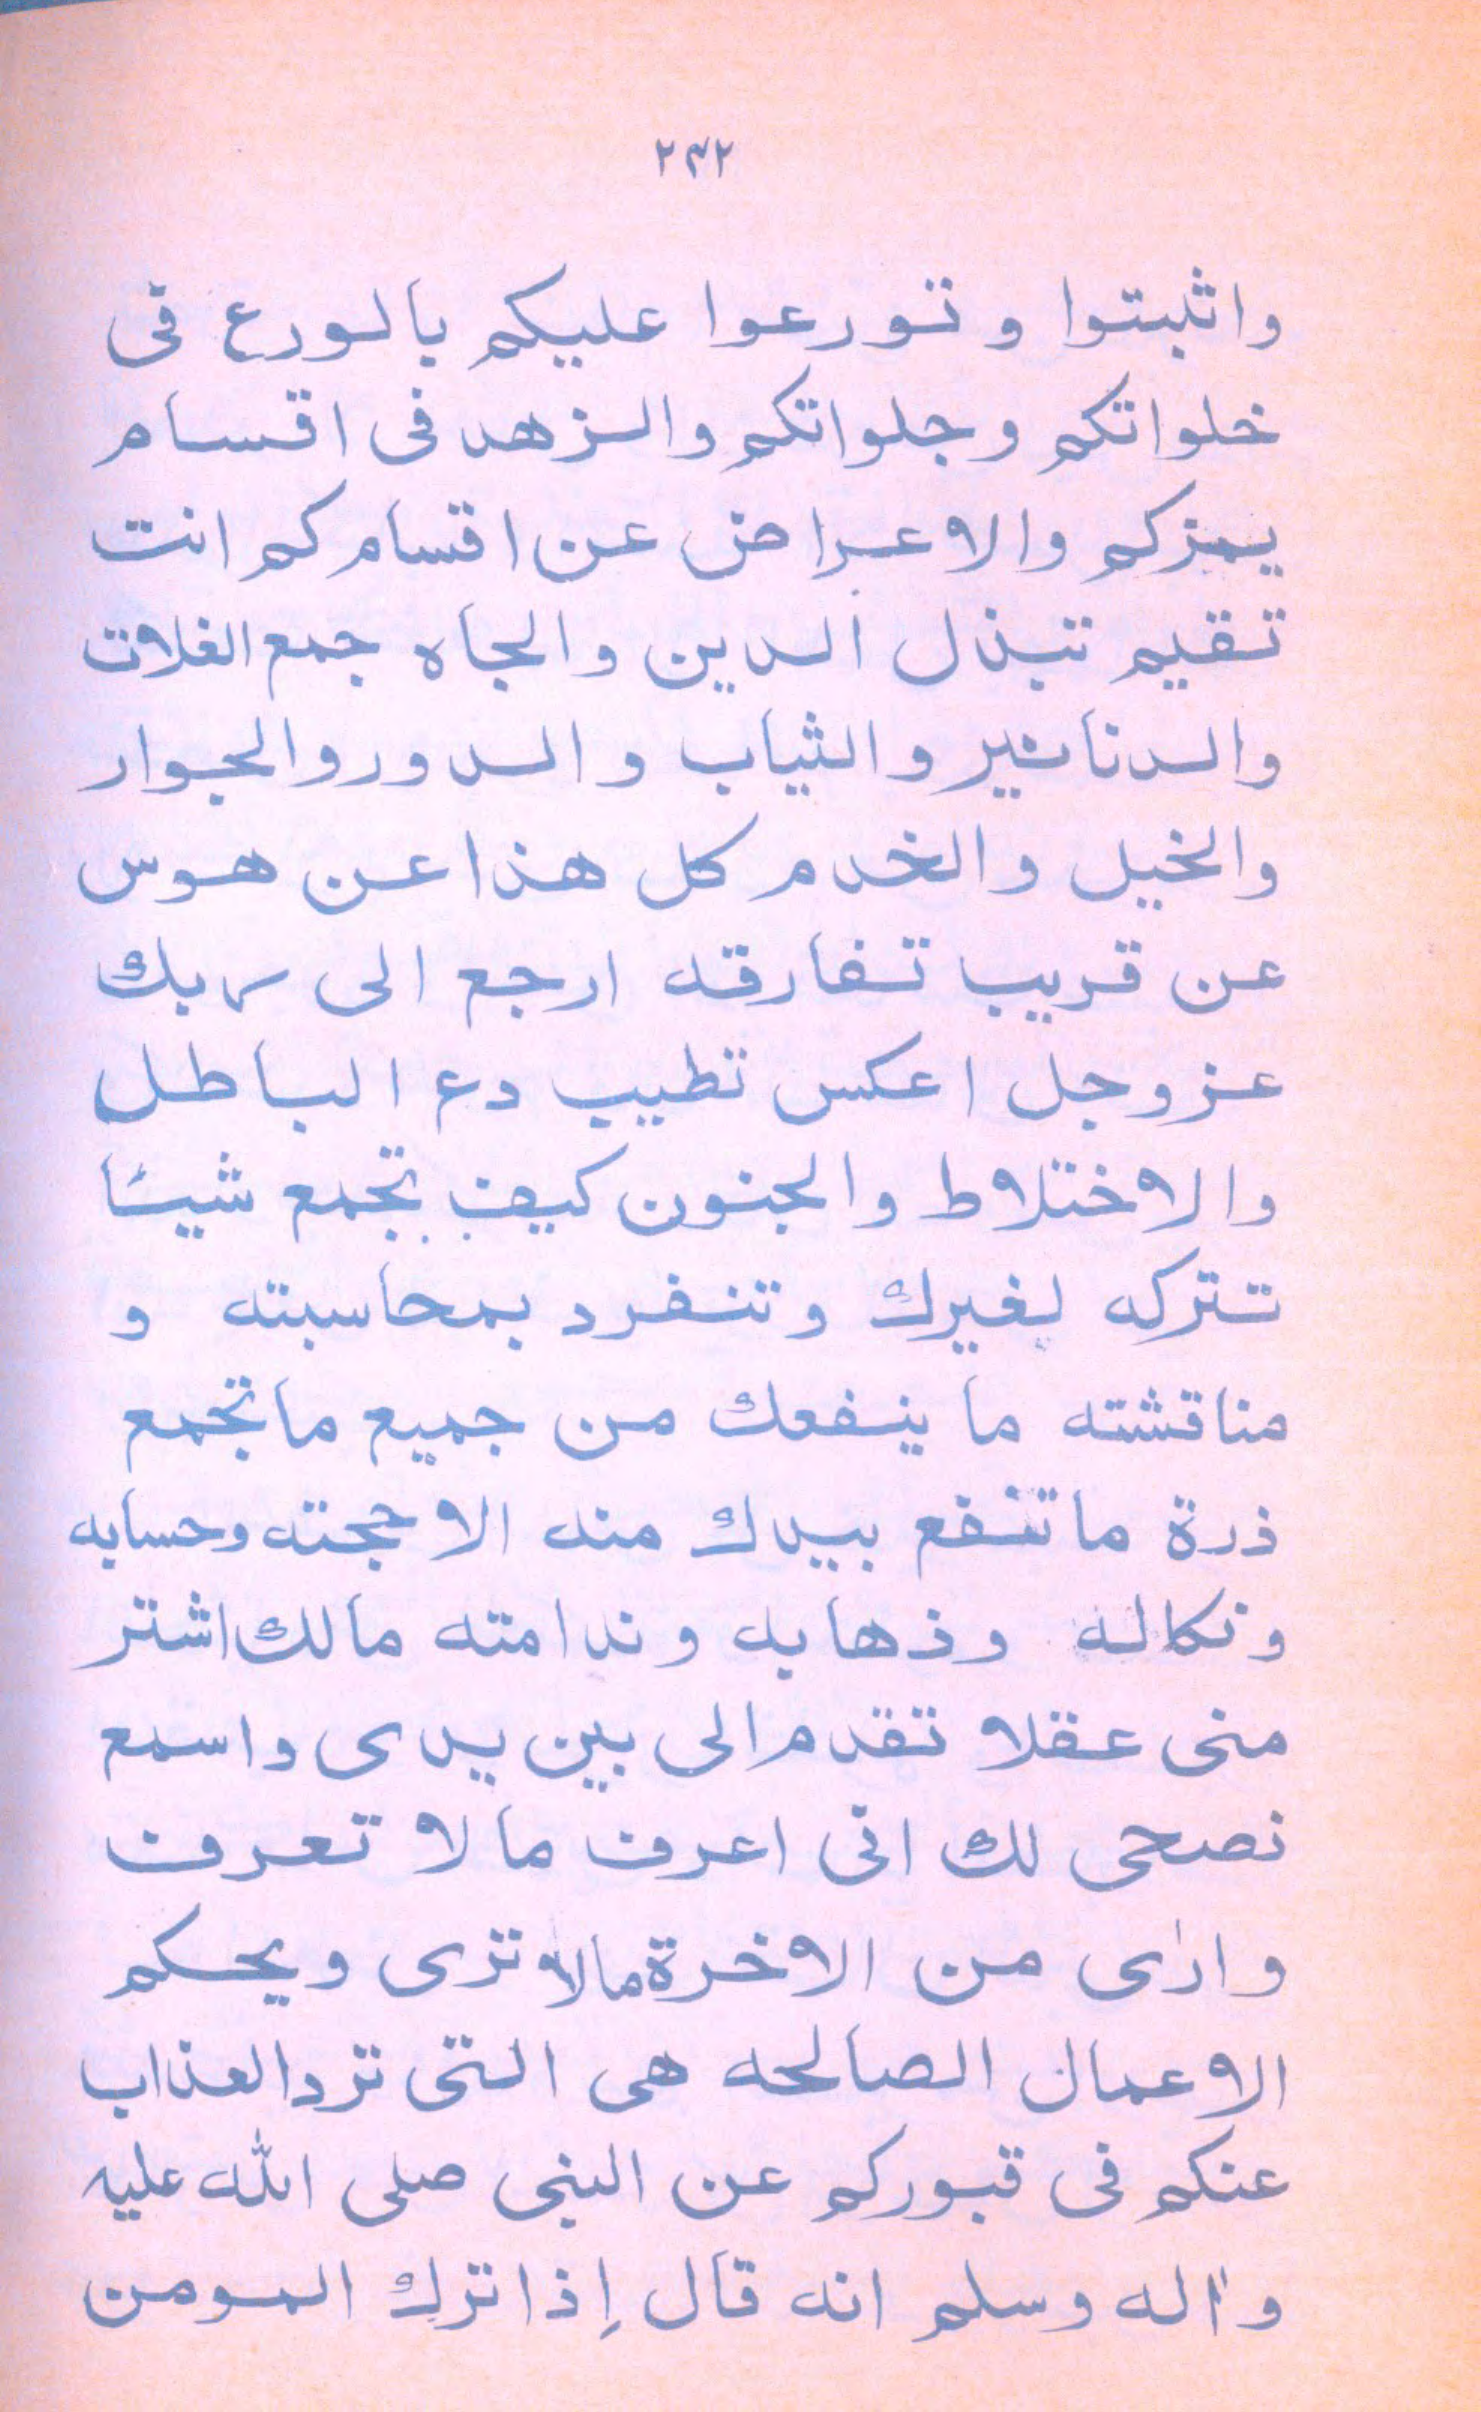 ٢٣٢
واثبتوا و تورعوا عليكم بالورع فى
خلواتكم وجلواتكم والزهد فى اقسام
يمزكم والاعراض عن اقسامكم انت
تقيم تبذل الدين والجاه جمع الغلات
والدنانير والثياب والدور والجوار
والخيل والخدم كل هذا عن هوس
عن قريب تفارقه ارجع الى ربك
عزوجل اعكس تطيب دع الباطل
والاختلاط والجنون كيف تجمع شيئا
تتركه لغيرك وتنفرد بمحاسبته و
مناقشته ما ينفعك من جميع ما تجمع
ذرة ما تنفع بيدك منه الا حجته وحسابه
ونكاله وذهابه وندامته مالك اشتر
منى عقلا تقدم الى بين يدى واسمع
نصحى لك انى اعرف ما لا تعرف
وارٰى من الاخرة مالا ترى ويحكم
الاعمال الصالحه هى التى ترد العذاب
عنكم فى قبوركم عن النبى صلى الله عليه
واٰله وسلم انه قال إذا ترك المومن